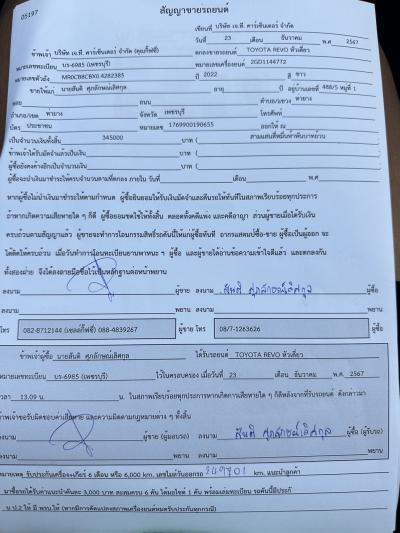 05197
สัญญาขายรถยนต์
เขียนที่ บริษัท เจ.ที. คาร์เซ็นเตอร์ จำกัด
วันที่ 23 เดือน ธันวาคม พ.ศ 2567
ข้าพเจ้า บริษัท เจ.ที. คาร์เซ็นเตอร์ จำกัด (คุณกิ๊ฟซี่) ตกลงขายรถยนต์ TOYOTA REVO หัวเดี่ยว
หมายเลขทะเบียน บร-6985 (เพชรบุรี) หมายเลขเครื่องยนต์ 2GD1144772
หมายเลขตัวถัง MR0CB8CBX0.4282385 ปี 2022 สี ขาว
ขายให้แก่ นายสันติ ศุภลักษณ์เลิศกุล อายุ ปี อยู่บ้านเลขที่ 488/5 หมู่ที่ 1
ซอย ถนน ตำบล/แขวง ท่ายาง
อำเภอ/เขต ท่ายาง จังหวัด เพชรบุรี โทรศัพท์
บัตร ประชาชน หมายเลข 1769900190655 ออกให้ ณ
เป็นจำนวนเงินทั้งสิ้น 345000 บาท ( สามแสนสี่หมื่นห้าพันบาทถ้วน
ข้าพเจ้าได้รับมัดจำแล้วเป็นเงิน บาท (
ผู้ซื้อยังคงค้างอีกเป็นจำนวนเงิน บาท (
ผู้ซื้อจะนำเงินมาชำระให้ครบจำนวนตามที่ตกลง ภายใน วันที่ เดือน พ.ศ
หากผู้ซื้อไม่นำเงินมาชำระให้ตามกำหนด ผู้ซื้อยินยอมให้ริบเงินมัดจำและคืนรถให้ทันทีในสภาพเรียบร้อยทุกประการ
ถ้าหากเกิดความเสียหายใด ๆ ก็ดี ผู้ซื้อยอมชดใช้ให้ทั้งสิ้น ตลอดทั้งคดีแพ่ง และคดีอาญา ส่วนผู้ขายเมื่อได้รับเงิน
ครบถ้วนตามสัญญาแล้ว ผู้ขายจะทำการโอนกรรมสิทธิ์รถคันนี้ให้แก่ผู้ซื้อทันที อากรแสตมป์ซื้อ-ขาย ผู้ซื้อเป็นผู้ออก จะ
ได้ติดให้ครบถ้วน เมื่อวันทำการโอนทะเบียนยานพาหนะ ฯ ผู้ซื้อ และผู้ขายได้อ่านข้อความเข้าใจดีแล้ว และตกลงกัน
ทั้งสองฝ่าย จึงได้ลงลายมือชื่อไว้เป็นหลักฐานต่อหน้าพยาน
ลงนาม ผู้ขาย ลงนาม สันติ ศุภลักษณ์เลิศกุล ผู้ซื้อ
ลงนาม พยาน ลงนาม พยาน
โทร 082-8712144 (เซลล์กิ๊ฟซี่) 088-4839267 ผู้ขาย โทร 08/7-1263626 ผู้ซื้อ
ข้าพเจ้าผู้ซื้อ นายสันติ ศุภลักษณ์เลิศกุล ได้รับรถยนต์ TOYOTA REVO หัวเดี่ยว
หมายเลขทะเบียน บร-6985 (เพชรบุรี) ไว้ในครอบครอง เมื่อวันที่ 23 เดือน ธันวาคม พ.ศ. 2567
เวลา 13.09 น. น. ในสภาพเรียบร้อยทุกประการหากเกิดการเสียหายใด ๆ ก็ดีหลังจากที่รับรถยนต์ ดังกล่าวมา
ข้าพเจ้าขอรับผิดชอบค่าเสียหาย และความผิดตามกฎหมายต่าง ๆ ทั้งสิ้น
ลงนาม ผู้ขาย (ผู้มอบรถ) ลงนาม สันติ ศุภลักษณ์เลิศกุล ผู้ซื้อ (ผู้รับรถ)
ลงนาม พยาน ลงนาม พยาน
หมายเหตุ รับประกันเครื่อง+เกียร์ 6 เดือน หรือ 6,000 km. เลขไมล์วันออกรถ 249701 km. แนะนำลูกค้า
มาซื้อรถได้รับค่าแนะนำคันละ 3,000 บาท สะสมครบ 6 คัน ได้มอไซค์ 1 คัน พร้อมเล่มทะเบียน รถคันนี้มีประกั
น ป.2 ให้ มี พรบ.ให้ (หากมีการดัดแปลงสภาพเครื่องยนต์หมดรับประกันทุกกรณี)